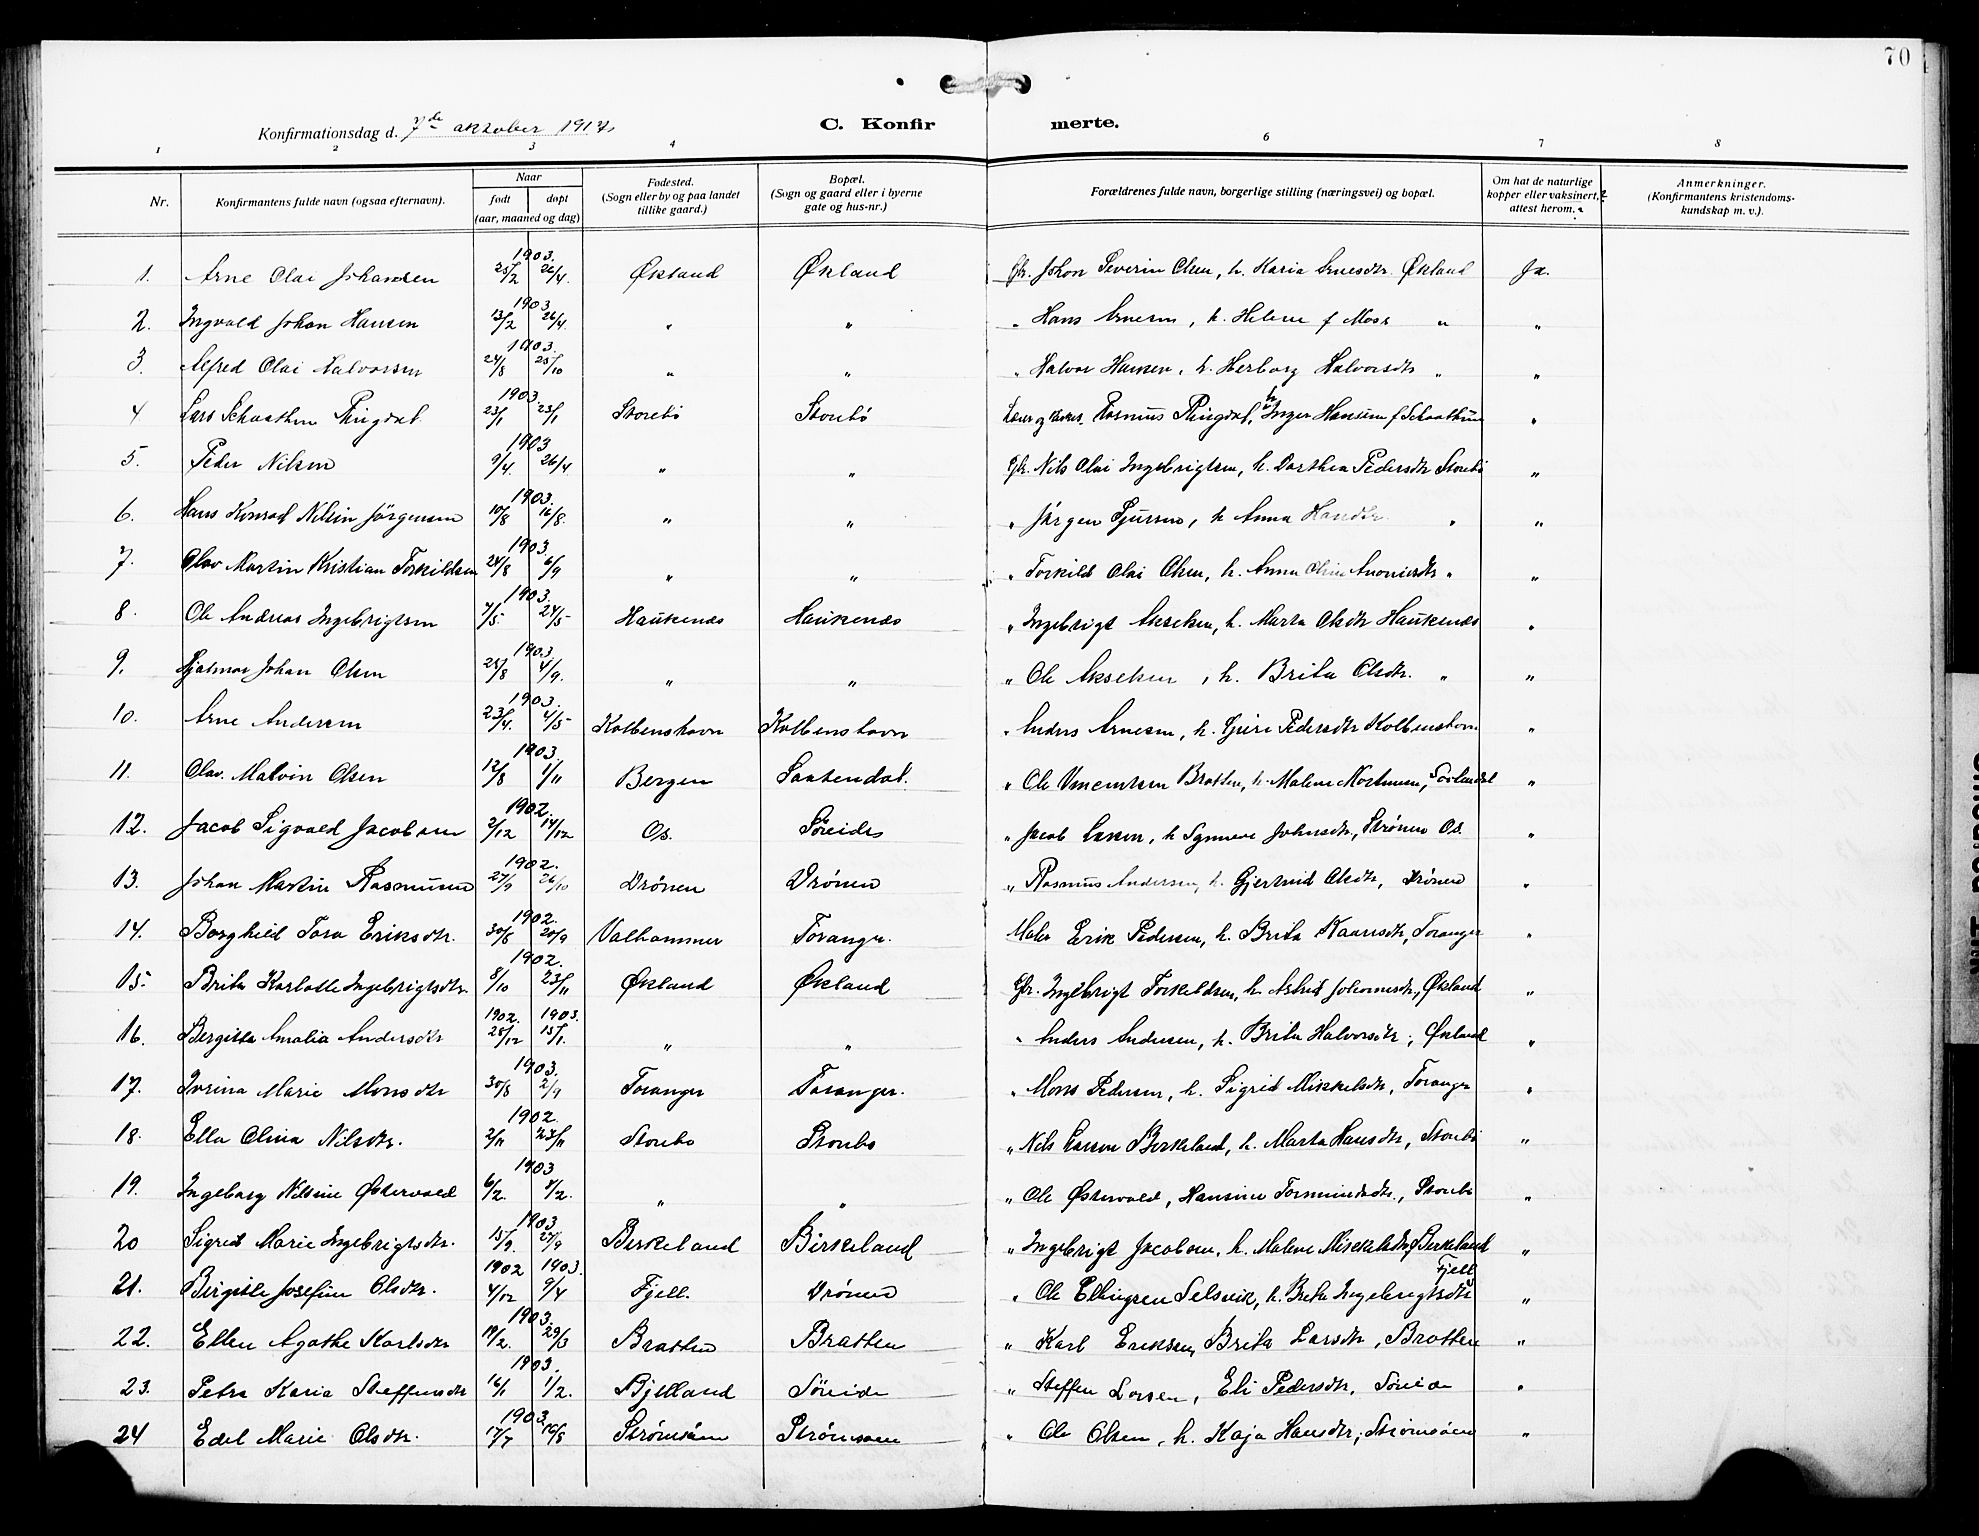 70
Konfirmationsdag d. 7de oktober 1917.
C. Konfirmerte.
1 2 3 4 5 6 7 8
Nr.
Konfirmantens fulde navn (ogsaa efternavn).
Naar
født
døpt
(aar, maaned og dag)
Fødested.
(Sogn eller by og paa landet
tillike gaard.)
Bopæl.
(Sogn og gaard eller i byerne
gate og hus-nr.)
Forældrenes fulde navn, borgerlige stilling (næringsvei) og bopæl.
Om hat de naturlige
kopper eller vaksinert,
attest herom.
Anmerkninger.
(Konfirmantens kristendoms-
kundskap m. v.).
1903.
1. Arne Olai Johansen 25/2 26/4. Økland Økland Gbr. Johan Severin Olsen, h. Karia Arnesdtr. Økland Ja.
1903.
2. Ingvald Johan Hansen 13/2 26/4. " " " Hans Arnesen, h. Helene f Moss " "
1903.
3. Alfred Olai Halvorsen 24/8 25/10 " " " Halvor Hansen, h. Herborg Halvorsdtr " "
1903.
4 Lars Schaathun Thingdal. 23/1 23/1 Storebö Storebö Rasmus Thingdal, h. Inger Hansine f Schaathun "
1903
5. Peder Nilsen 9/4. 26/4 " " Gbr. Nils Olai Ingebrigtsen, h. Dorthea Pedersdtr Storebö "
1903.
6. Hans Konrad Nilsin Jörgensen 10/8 16/8. " " " Jörgen Sjursen, h Anna Hansdtr. " "
1903.
7. Olav Martin Kristian Torkildsen 24/8 6/9 " " " Torkild Olai Olsen, h. Anna Oline " "
1903.
8. Ole Andreas Ingebrigtsen 7/5- 24/5 Haukenæs Haukenæs " Ingebrigt Akselsen, h. Marta Olsdtr Haukenæs "
1903.
9. Hjalmar Johan Olsen 25/8 4/9. " " " Ole Akselsen, h. Brita Olsdtr. " "
1903.
10. Arne Andersen 23/4. 4/5- Kolbenshavn Kolbenshavn " Anders Arnesen, h. Guri Pedersdtr Kolbenshavn "
1903.
11. Olav. Malvin Olsen 12/8 1/11 Bergen " Ole Bratten, h. Malene "
1902.
12. Jacob Sigvald Jacobsen 2/12 14/12 Os. Söreide " Jacob Larsen, h Synneve Johnsdtr, Strönen Os. "
1902.
13. Johan Martin Rasmussen 27/9 26/10 Drönen Drönen " Rasmus Andersen, h. Gjertrud Olsdtr, Drönen "
1902.
14. Borghild Tora Eriksdtr. 30/8 20/9 Valhammer Toranger. Maler Erik Pedersen, h. Brita Toranger "
1902.
15. Brita Karlotte Ingebrigtsdtr. 8/10 23/11 Økland Økland Gbr. Ingebrigt Torkildsen, h. Astrid Johannesdtr, Økland "
1902. 1903.
16. Bergitte Amalia Andersdtr 28/12 15/1. " " " Anders Andersen, h. Brita Halvorsdtr, Økland "
1903.
17. Ivrina Marie Monsdtr 30/8 2/9 Toranger Toranger. " Mons Pedersen, h. Sigrid Mikkelsdtr, Toranger "
1902.
18. Ella Olina Nilsdtr. 2/11 23/11 Storebö Storebö " Nils Larsen Birkeland, h. Marta Hansdtr, Storebö "
1903
19. Ingeborg Nilsine Östervold 6/2. 8/2. " " " Ole Östervold, Hansine Tormundsdtr., Storebö "
1903
20 Sigrid Marie Ingebrigtsdtr. 15/9. 27/9 Birkeland Birkeland " Ingebrigt Jacobsen, h. Malene Mikkelsdtr, Birkeland "
1902 1903.
21. Birgitte Josefine Olsdtr. 4/12 9/4 Fjell. Drönen " Ole Ellingsen Selsvik, h. Brita Ingebrigtsdtr Fjell "
1903.
22. Ellen Agathe Karlsdtr 19/2. 29/3 Bratten Bratten " Karl Eriksen, Brita Larsdtr, Bratten "
1903.
23. Petra Karia Steffensdtr 16/1 1/2. Bjelland Söreide " Steffen Larsen, Eli Pedersdtr, Söreide "
1903.
24 Edel Marie Olsdtr. 17/7 16/8 Strömsöen Strömsöen " Ole Olsen, h. Kaja Hansdtr, Strömsöen "